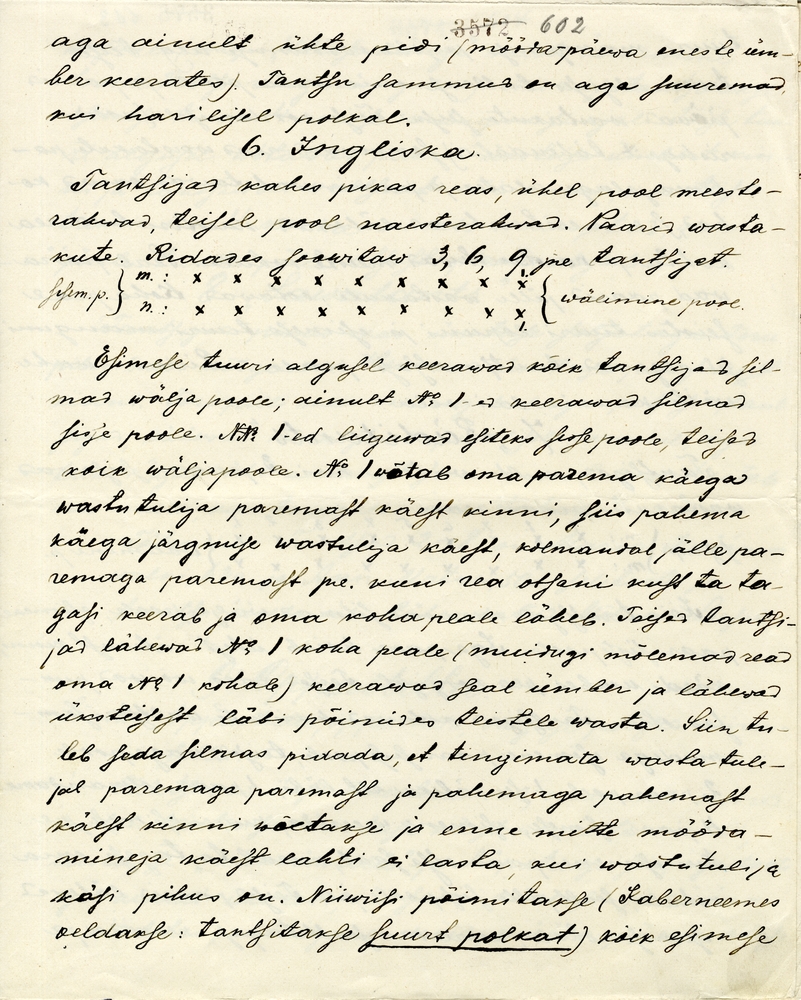 3572 602
aga ainult ühte pidi (mööda-päewa eneste üm-
ber keerates). Tantsu sammud on aga suuremad,
kui harilisel polkal.
6. Ingliska.
Tantsijad kahes pikas reas, ühel pool meeste-
rahwad, teisel pool naesterahwad. Paarid wasta-
kute. Ridades soowitaw 3, 6, 9 jne tantsijat.
1.
sisem. p. } m. : x x x x x x x x x { wälimine pool.
n. : x x x x x x x x x
1.
Esimese tuuri algusel keerawad kõik tantsijad sil-
mad wälja poole; ainult № 1-ed keerawad silmad
sisse poole. №№ 1-ed liiguwad esiteks sisse poole, teised
kõik wäljapoole. № 1 wõtab oma parema käega
wastutulija paremast käest kinni, siis pahema
käega järgmise wastulija käest, kolmandal jälle pa-
remaga paremast jne. kuni rea otsani kust ta ta-
gasi keerab ja oma koha peale läheb. Teised tantsi-
jad lähewad № 1 koha peale (muidugi mõlemad read
oma № 1 kohale) keerawad seal ümber ja lähewad
üksteisest läbi põimides teistele wasta. Siin tu-
leb seda silmas pidada, et tingimata wasta tule-
jal paremaga paremast ja pahemaga pahemast
käest kinni wõetakse ja enne mitte mööda-
mineja käest lahti ei lasta, kui wastutulija
käsi pihus on. Niiwiisi põimitakse (Kaberneemes
öeldakse: tantsitakse suurt polkat) kõik esimese